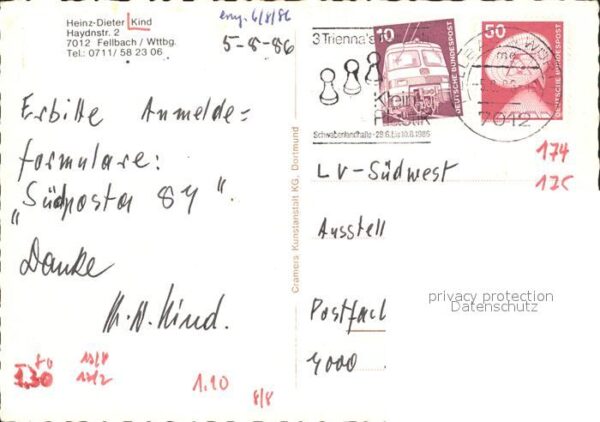 Heinz-Dieter Kind
Haydnstr. 2
7012 Fellbach / Wttbg.
Tel.: 0711/ 58 23 06
6/8/86
5-8-86
Erbitte Anmelde=
formulare:
"Südposta 87"
Danke
H.D. Kind.
1.30
13/2
1.10
8/8
Cramers Kunstanstalt KG, Dortmund
3 Trienna's
Klein
Plastik
Schwabenlandhalle - 28.6. bis 10.8.1986
10
DEUTSCHE BUNDESPOST
50
DEUTSCHE BUNDESPOST
7012
174
175
LV-Südwest
Ausstell
Postfach
7000
privacy protection
Datenschutz